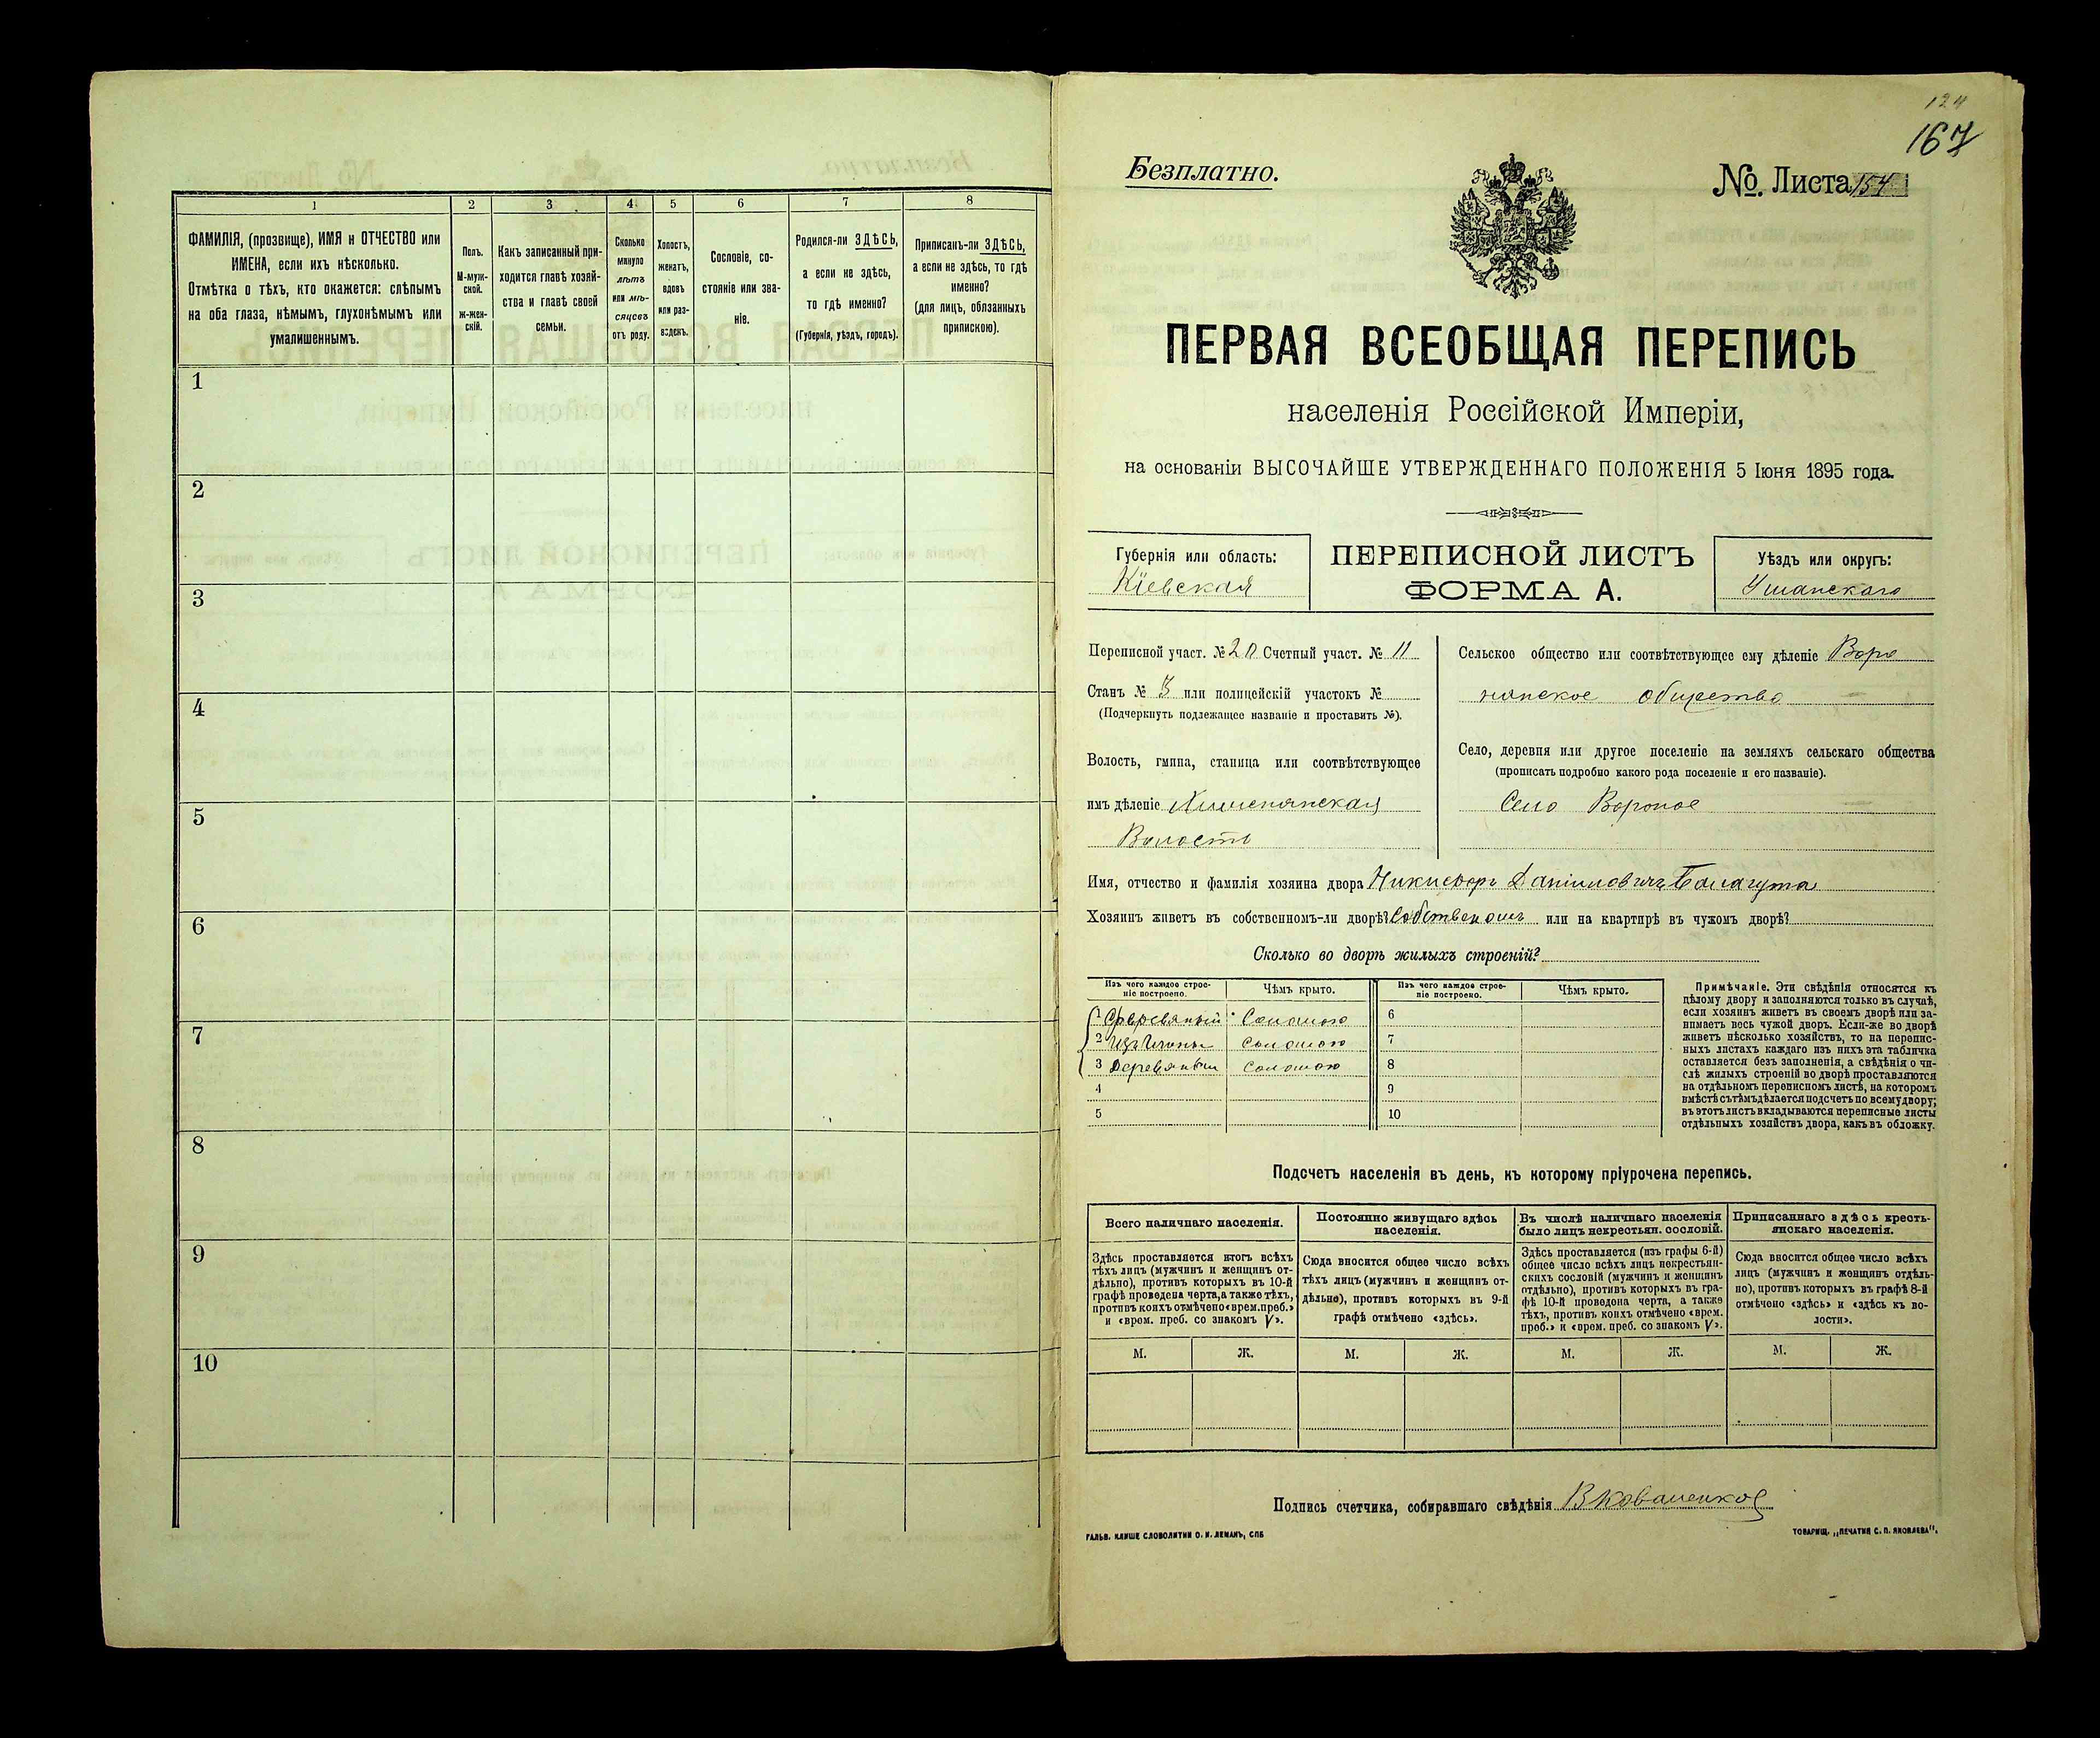 1
2
3
4
5
6
7
8
ФАМИЛІЯ, (прозвище), ИМЯ и ОТЧЕСТВО или
ИМЕНА, если ихъ нѣсколько.
Отмѣтка о тѣхъ, кто окажется: слѣпымъ
на оба глаза, нѣмымъ, глухонѣмымъ или
умалишеннымъ.
Полъ.
М-муж-
ской.
Ж-жен-
скій.
Какъ записанный при-
ходится главѣ хозяй-
ства и главѣ своей
семьи.
Сколько
минуло
лѣтъ
или мѣ-
сяцевъ
отъ роду.
Холостъ,
женатъ,
вдовъ
или раз-
веденъ.
Сословіе, со-
стояніе или зва-
ніе.
Родился-ли ЗДѢСЬ,
а если не здѣсь,
то гдѣ именно?
(Губернія, уѣздъ, городъ).
Приписанъ-ли ЗДѢСЬ,
а если не здѣсь, то гдѣ
именно?
(для лицъ, обязанныхъ
припискою).
1
2
3
4
5
6
7
8
9
10
124
167
Безплатно.
№. Листа 154
ПЕРВАЯ ВСЕОБЩАЯ ПЕРЕПИСЬ
населенія Россійской Имперіи,
на основаніи ВЫСОЧАЙШЕ УТВЕРЖДЕННАГО ПОЛОЖЕНІЯ 5 Іюня 1895 года.
Губернія или область:
Кіевская
ПЕРЕПИСНОЙ ЛИСТЪ
ФОРМА А.
Уѣздъ или округъ:
Уманскаго
Переписной участ. № 20 Счетный участ. № 11
Станъ № 3 или полицейскій участокъ №
(Подчеркнуть подлежащее названіе и проставить №).
Волость, гмина, станица или соотвѣтствующее
имъ дѣленіе
Волость
Сельское общество или соотвѣтствующее ему дѣленіе Воро
нянское общество
Село, деревня или другое поселеніе на земляхъ сельскаго общества
(прописать подробно какого рода поселеніе и его названіе).
Село Вороное
Имя, отчество и фамилія хозяина двора Никифоръ Даниловичъ Балагута
Хозяинъ живетъ въ собственномъ-ли дворѣ? Собственомъ или на квартирѣ въ чужомъ дворѣ?
Сколько во дворѣ жилыхъ строеній?
Изъ чего каждое строе-
ніе построено.
Чѣмъ крыто.
Изъ чего каждое строе-
ніе построено.
Чѣмъ крыто.
1 Соломою
6
2 Соломою
7
3 Деревяный Соломою
8
4
9
5
10
Примѣчаніе. Эти свѣдѣнія относятся къ
цѣлому двору и заполняются только въ случаѣ,
если хозяинъ живетъ въ своемъ дворѣ или за-
нимаетъ весь чужой дворъ. Если-же во дворѣ
живетъ нѣсколько хозяйствъ, то на перепис-
ныхъ листахъ каждаго изъ нихъ эта табличка
оставляется безъ заполненія, а свѣдѣнія о чи-
слѣ жилыхъ строеній во дворѣ проставляются
на отдѣльномъ переписномъ листѣ, на которомъ
вмѣстѣ съ тѣмъ дѣлается подсчетъ по всему двору;
въ этотъ листъ вкладываются переписные листы
отдѣльныхъ хозяйствъ двора, какъ въ обложку.
Подсчетъ населенія въ день, къ которому пріурочена перепись.
Всего наличнаго населенія.
Постоянно живущаго здѣсь
населенія.
Въ числѣ наличнаго населенія
было лицъ некрестьян. сословій.
Приписаннаго здѣсь кресть-
янскаго населенія.
Здѣсь проставляется итогъ всѣхъ
тѣхъ лицъ (мужчинъ и женщинъ от-
дѣльно), противъ которыхъ въ 10-й
графѣ проведена черта, а также тѣхъ,
противъ коихъ отмѣчено «врем. преб.»
и «врем. преб. со знакомъ V».
Сюда вносится общее число всѣхъ
тѣхъ лицъ (мужчинъ и женщинъ от-
дѣльно), противъ которыхъ въ 9-й
графѣ отмѣчено «здѣсь».
Здѣсь проставляется (изъ графы 6-й)
общее число всѣхъ лицъ некрестьян-
скихъ сословій (мужчинъ и женщинъ
отдѣльно), противъ которыхъ въ гра-
фѣ 10-й проведена черта, а также
тѣхъ, противъ коихъ отмѣчено «врем.
преб.» и «врем. преб. со знакомъ V».
Сюда вносится общее число всѣхъ
лицъ (мужчинъ и женщинъ отдѣль-
но), противъ которыхъ въ графѣ 8-й
отмѣчено «здѣсь» и «здѣсь къ во-
лости».
М. Ж. М. Ж. М. Ж. М. Ж.
Подпись счетчика, собиравшаго свѣдѣнія В Коваленков
ГАЛЬВ. КЛИШЕ СЛОВОЛИТНИ О. И. ЛЕМАНЪ, СПБ
ТОВАРИЩ. „ПЕЧАТНЯ С. П. ЯКОВЛЕВА".